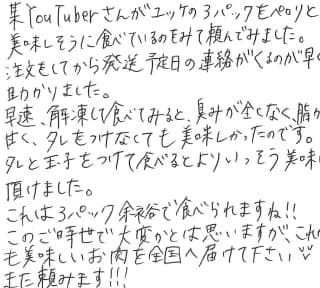 某YouTuberさんがユッケの3パックをペロリと
美味しそうに食べているのをみて頼んでみました。
注文をしてから発送予定日の連絡がくるのが早く
助かりました。
早速、解凍して食べてみると、臭みが全くなく、脂が
甘く、タレをつけなくても美味しかったのです。
タレと玉子をつけて食べるとよりいっそう美味
頂けました。
これは3パック余裕で食べられますね!!
このご時世で大変かとは思いますが、これ
も美味しいお肉を全国へ届けて下さい♡♡
また頼みます!!!